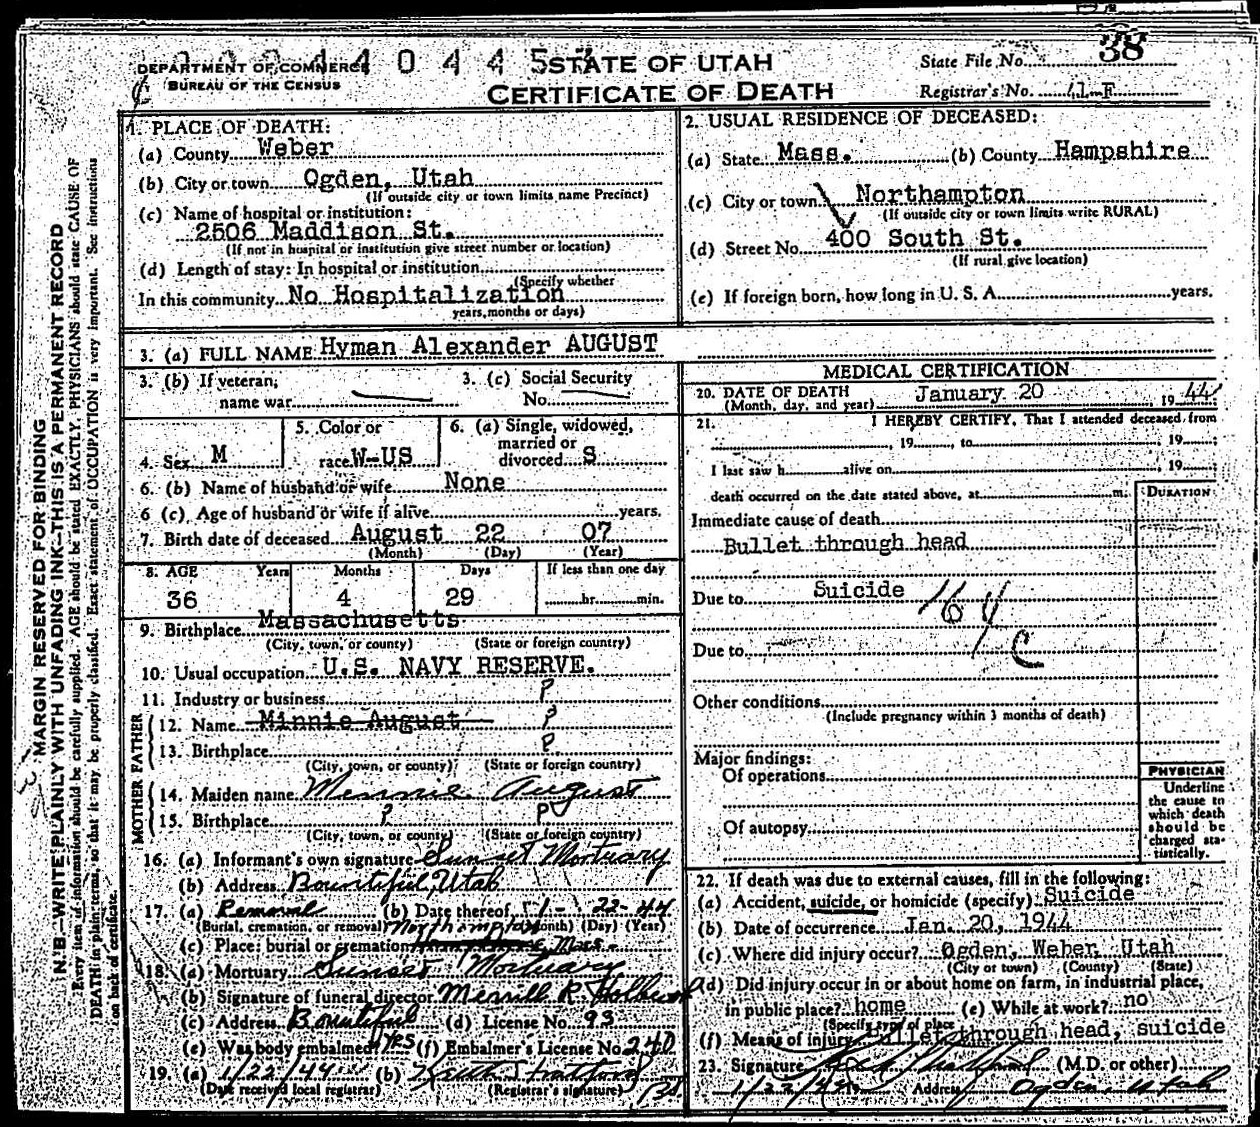 38
0 4 4 5 7
DEPARTMENT OF COMMERCE
BUREAU OF THE CENSUS
STATE OF UTAH
CERTIFICATE OF DEATH
State File No.
Registrar's No. 41-F
1. PLACE OF DEATH:
(a) County Weber
(b) City or town Ogden, Utah
(If outside city or town limits name Precinct)
(c) Name of hospital or institution:
2506 Maddison St.
(If not in hospital or institution give street number or location)
(d) Length of stay: In hospital or institution
(Specify whether
In this community No Hospitalization
years, months or days)
2. USUAL RESIDENCE OF DECEASED:
(a) State Mass. (b) County Hampshire
(c) City or town Northampton
(If outside city or town limits write RURAL)
(d) Street No. 400 South St.
(If rural give location)
(e) If foreign born, how long in U. S. A. years.
3. (a) FULL NAME Hyman Alexander AUGUST
3. (b) If veteran, name war
3. (c) Social Security No.
4. Sex M
5. Color or race W-US
6. (a) Single, widowed, married or divorced S
6. (b) Name of husband or wife None
6 (c). Age of husband or wife if alive years.
7. Birth date of deceased August 22 07
(Month) (Day) (Year)
8. AGE Years Months Days If less than one day
36 4 29 hr. min.
9. Birthplace Massachusetts
(City, town, or county) (State or foreign country)
10. Usual occupation U.S. NAVY RESERVE.
11. Industry or business ?
FATHER
12. Name Minnie August ?
13. Birthplace ?
(City, town, or county) (State or foreign country)
MOTHER
14. Maiden name Minnie August
15. Birthplace ? ?
(City, town, or county) (State or foreign country)
16. (a) Informant's own signature Sunset Mortuary
(b) Address Bountiful, Utah
17. (a) Removal (b) Date thereof 1- 22-44
(Burial, cremation, or removal) (Month) (Day) (Year)
(c) Place: burial or cremation Northampton Mass.
18. (a) Mortuary Sunset Mortuary
(b) Signature of funeral director Merrill R. Holbrook
(c) Address Bountiful (d) License No. 93
(e) Was body embalmed? Yes (f) Embalmer's License No. 240
19. (a) 1/22/44 (b)
(Date received local registrar) (Registrar's signature)
MEDICAL CERTIFICATION
20. DATE OF DEATH January 20 1944
(Month, day, and year)
21. I HEREBY CERTIFY, That I attended deceased from
, 19 , to , 19
I last saw h alive on , 19
death occurred on the date stated above, at m.
DURATION
Immediate cause of death
Bullet through head
Due to Suicide
164
C
Due to
Other conditions
(Include pregnancy within 3 months of death)
Major findings:
Of operations
Of autopsy
PHYSICIAN
Underline
the cause to
which death
should be
charged sta-
tistically.
22. If death was due to external causes, fill in the following:
(a) Accident, suicide, or homicide (specify) Suicide
(b) Date of occurrence Jan. 20, 1944
(c) Where did injury occur? Ogden, Weber, Utah
(City or town) (County) (State)
(d) Did injury occur in or about home on farm, in industrial place,
in public place? home (e) While at work? no
(Specify type of place
(f) Means of injury Bullet through head, suicide
23. Signature (M.D. or other)
Address Ogden Utah
MARGIN RESERVED FOR BINDING
N. B.—WRITE PLAINLY WITH UNFADING INK—THIS IS A PERMANENT RECORD
Every item of information should be carefully supplied. AGE should be stated EXACTLY. PHYSICIANS should state CAUSE OF
DEATH in plain terms, so that it may be properly classified. Exact statement of OCCUPATION is very important. See instructions
on back of certificate.